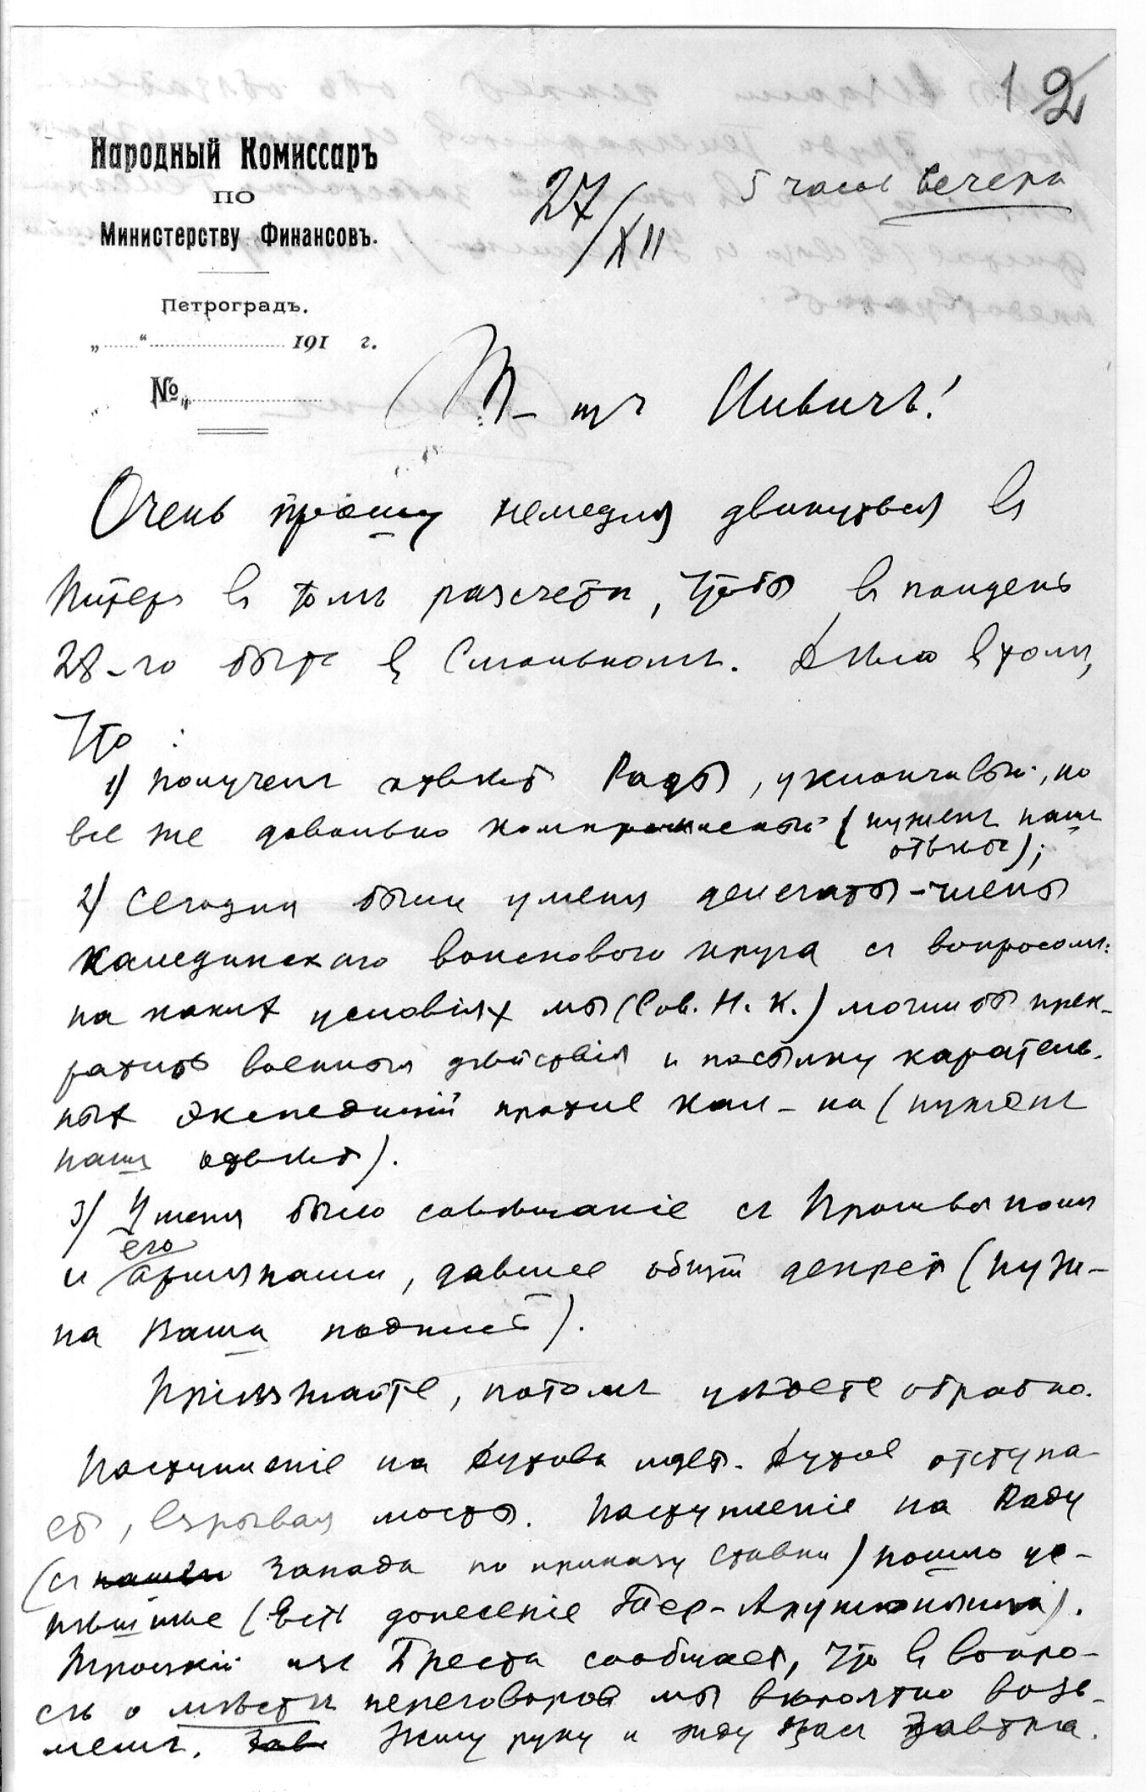 12
Народный Комиссаръ
по
Министерству Финансовъ.
Петроградъ.
„ “ 191 г.
№
27/XII
5 часов вечера
Т-щъ Ильичъ!
Очень прошу немедля двинуться въ
Питеръ въ томъ разсчетѣ, чтобы въ полдень
28-го быть въ Смольномъ. Дѣло въ томъ,
что:
1) Полученъ отвѣтъ Рады, уклончивый, но
все же довольно компромисный (нуженъ нашъ
отвѣтъ);
2) Сегодня были у меня делегаты-члены
калединского войскового круга съ вопросомъ:
на какихъ условіях мы (Сов. Н. К.) могли бы прек-
ратить военныя дѣйствія и посылку каратель-
ных экспедицій противъ Кал-на (нуженъ
нашъ отвѣтъ).
3) У меня было совѣщаніе съ Прошьяномъ
и его армянами, давшее общій декрет (нуж-
на Ваша подпись).
Пріѣзжайте, потомъ уѣдете обратно.
Наступленіе на Дутова идет. Дутов отступа-
ет, взрывая мосты. Наступленіе на Раду
(съ Запада по приказу ставки) пошло ус-
пѣшнѣе (Есть донесеніе Тер-Арутюнянца).
Троцкій из Бреста сообщает, что в вопро-
сѣ о мѣстѣ переговоров мы вѣроятно возь-
мемъ. Зав Жму руку и жду Вас Завтра.